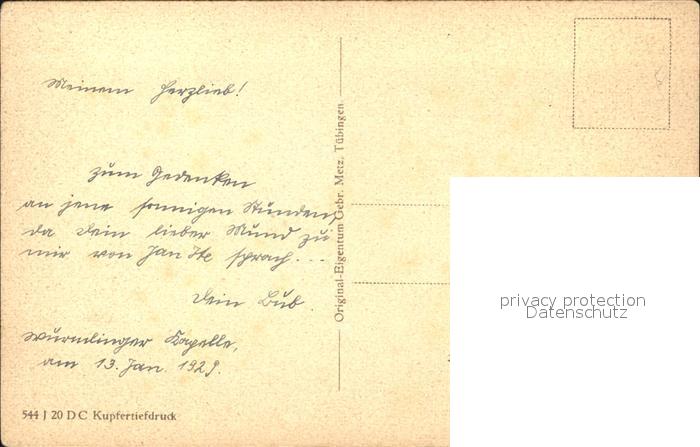 Meinem Herzlieb!
zum Gedenken
an jene sonnigen Stunden,
da Dein lieber Mund zu
mir von sprach...
Dein Bub.
Wurmlinger Kapelle,
am 13. Jan. 1929.
544 J 20 D C Kupfertiefdruck
Original-Eigentum Gebr. Metz, Tübingen.
privacy protection
Datenschutz